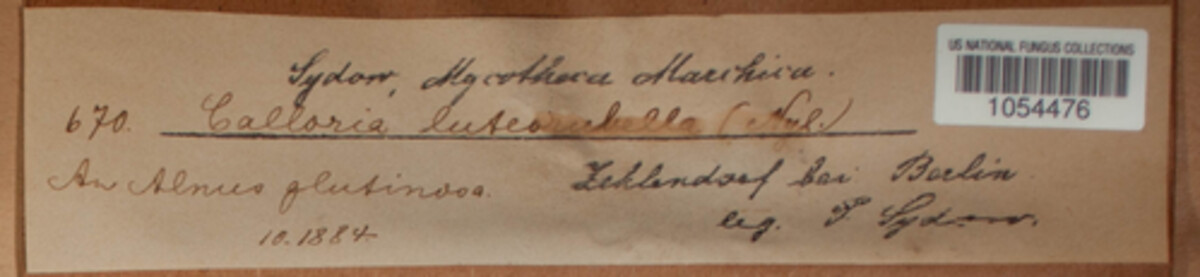 Sydow, Mycotheca Marchica.
670. Calloria luteorubella (Nyl.)
An Alnus glutinosa.
10.1884
Zehlendorf bei Berlin
leg. P. Sydow.
US NATIONAL FUNGUS COLLECTIONS
1054476